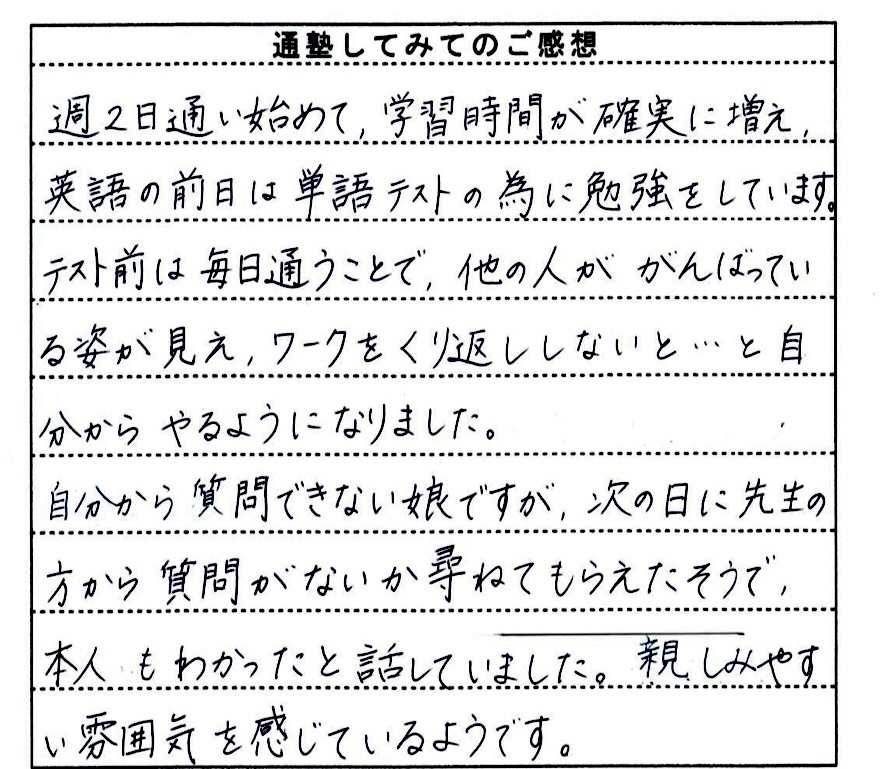 通塾してみてのご感想
週2日通い始めて,学習時間が確実に増え,
英語の前日は単語テストの為に勉強をしています。
テスト前は毎日通うことで,他の人ががんばってい
る姿が見え,ワークをくり返ししないと…と自
分からやるようになりました。
自分から質問できない娘ですが,次の日に先生の
方から質問がないか尋ねてもらえたそうで,
本人もわかったと話していました。親しみやす
い雰囲気を感じているようです。